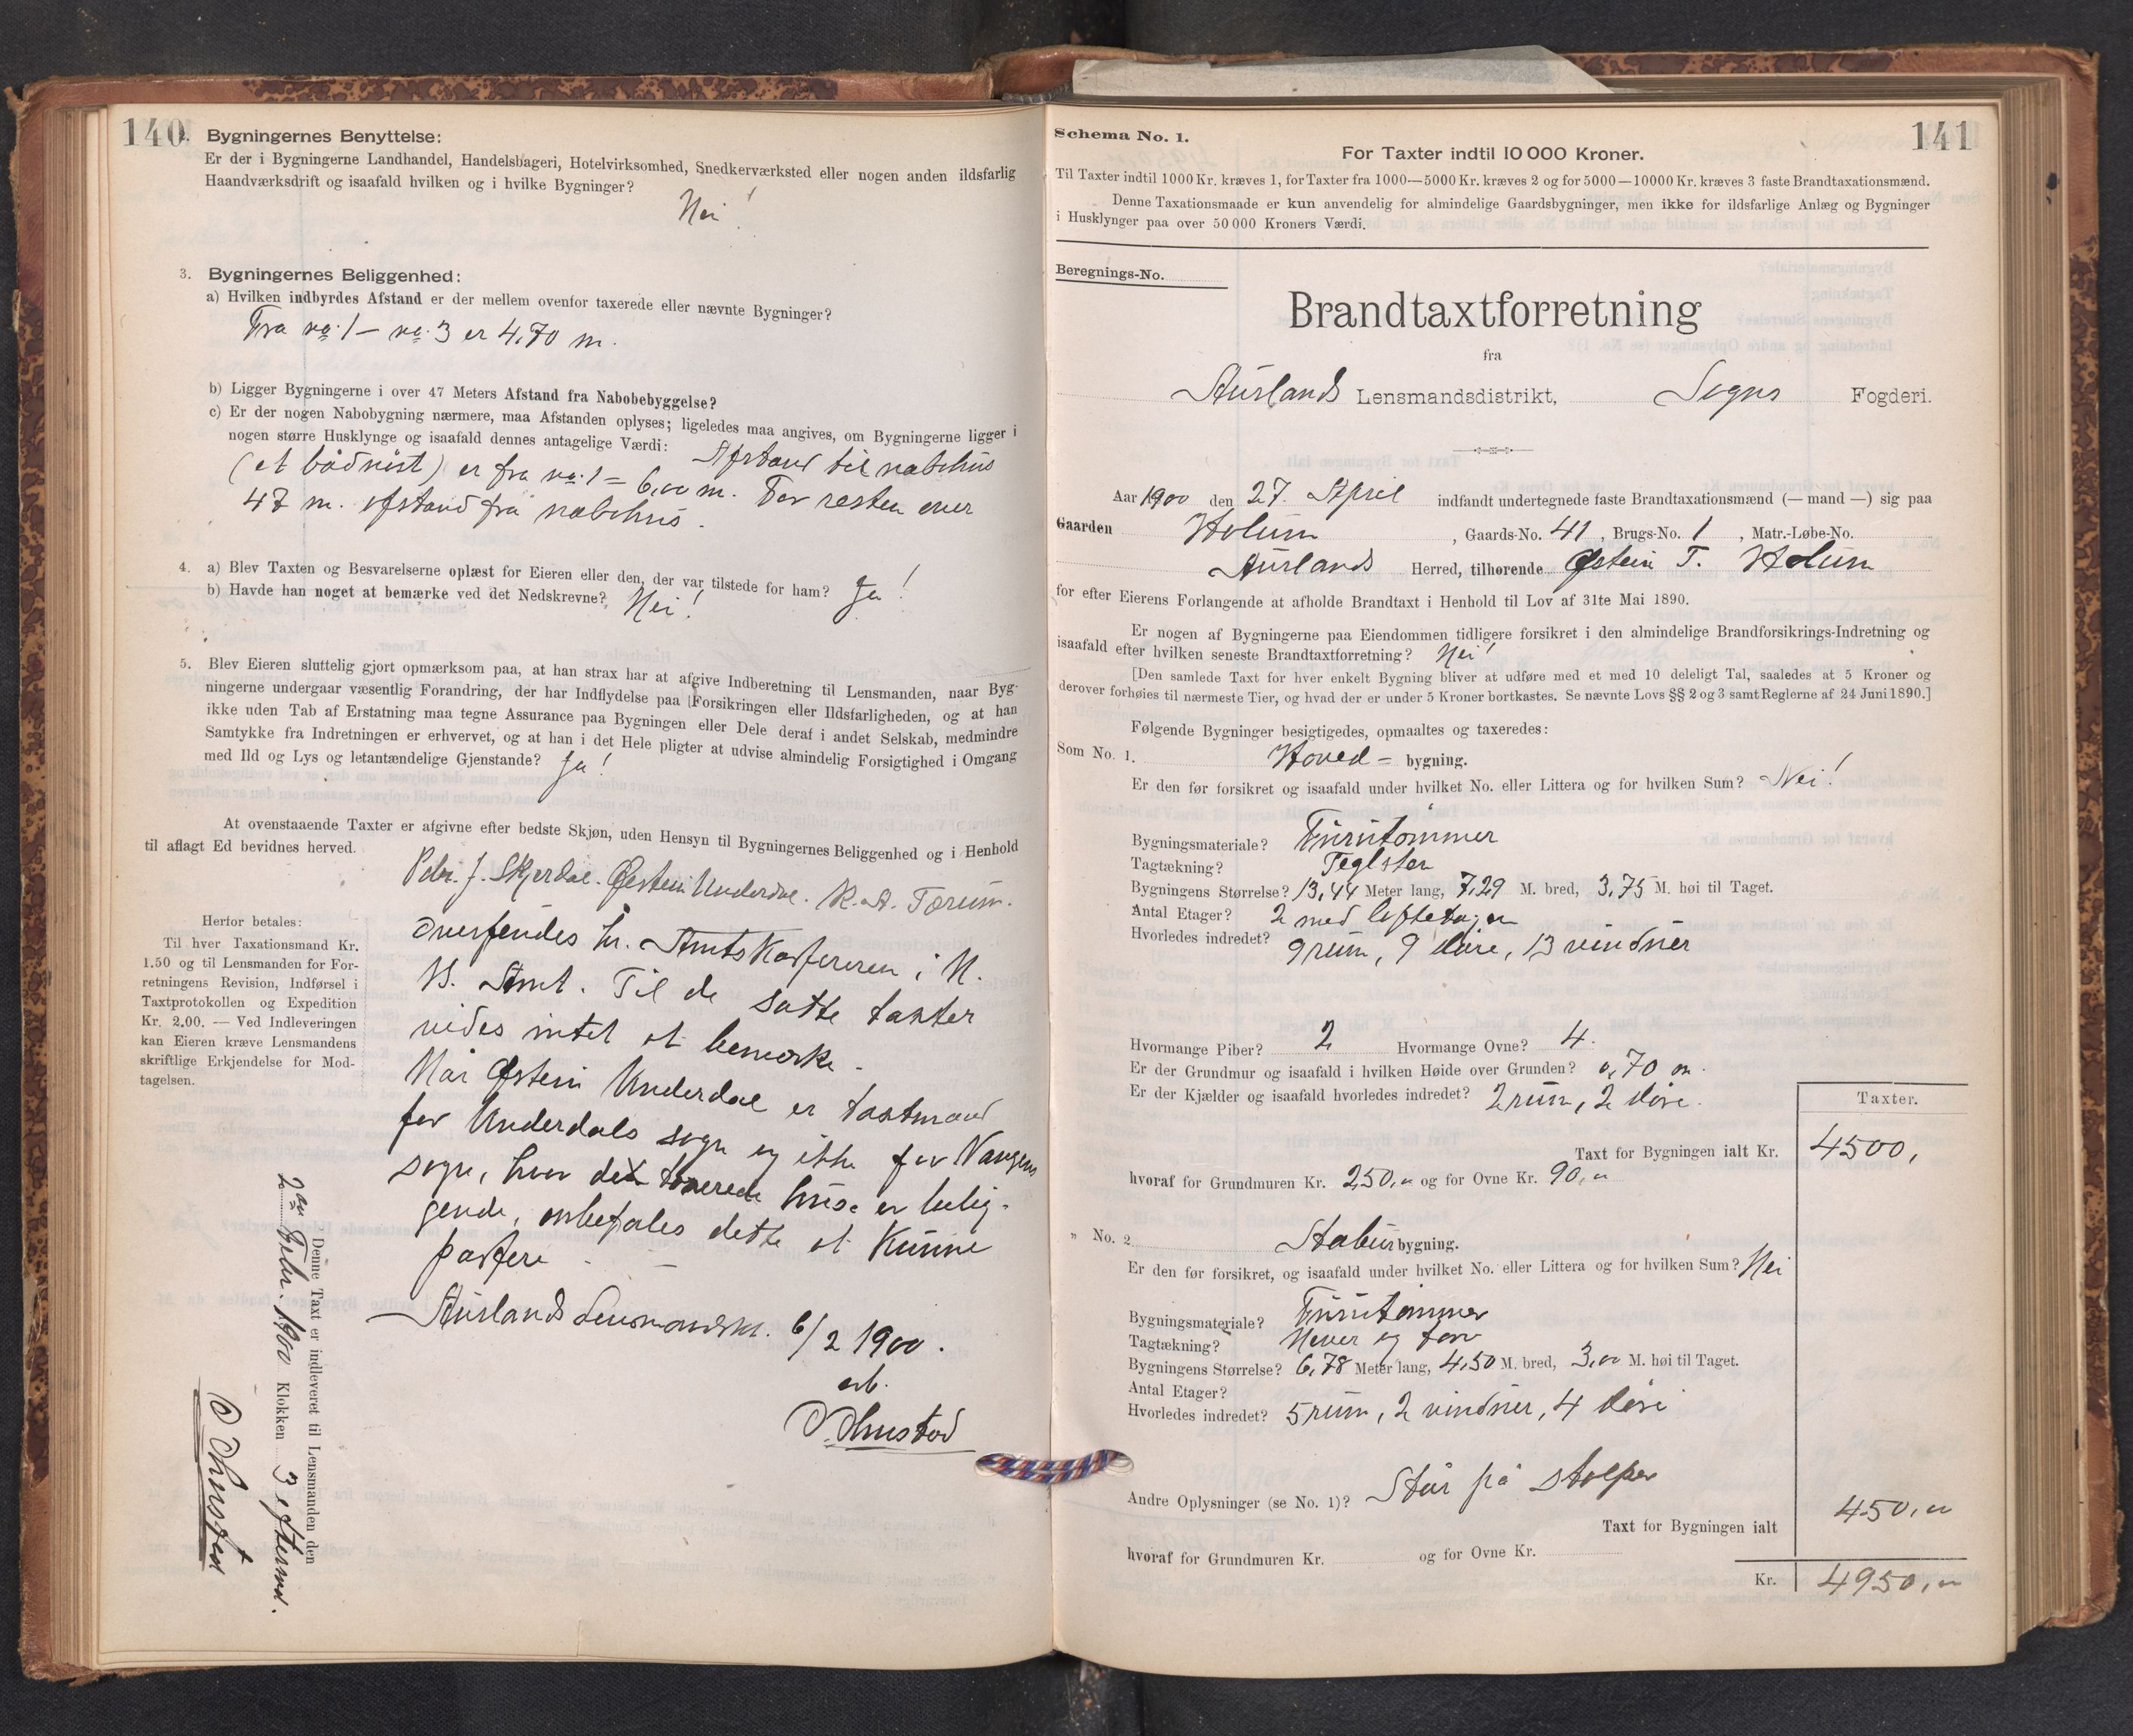 140
2. Bygningernes Benyttelse:
Er der i Bygningerne Landhandel, Handelsbageri, Hotelvirksomhed, Snedkerværksted eller nogen anden ildsfarlig
Haandværksdrift og isaafald hvilken og i hvilke Bygninger?
Nei!
3. Bygningernes Beliggenhed:
a) Hvilken indbyrdes Afstand er der mellem ovenfor taxerede eller nævnte Bygninger?
Fra no. 1 – no. 3 er 4,70 m.
b) Ligger Bygningerne i over 47 Meters Afstand fra Nabobebyggelse?
c) Er der nogen Nabobygning nærmere, maa Afstanden oplyses; ligeledes maa angives, om Bygningerne ligger i
nogen større Husklynge og isaafald dennes antagelige Værdi: Afstand til nabohus
(et bådnöst) er fra no. 1 = 6,00 m. For resten over
47 m. afstand fra nabohus.
4. a) Blev Taxten og Besvarelserne oplæst for Eieren eller den, der var tilstede for ham? Ja!
b) Havde han noget at bemærke ved det Nedskrevne? Nei!
5. Blev Eieren sluttelig gjort opmærksom paa, at han strax har at afgive Indberetning til Lensmanden, naar Byg-
ningerne undergaar væsentlig Forandring, der har Indflydelse paa Forsikringen eller Ildsfarligheden, og at han
ikke uden Tab af Erstatning maa tegne Assurance paa Bygningen eller Dele deraf i andet Selskab, medmindre
Samtykke fra Indretningen er erhvervet, og at han i det Hele pligter at udvise almindelig Forsigtighed i Omgang
med Ild og Lys og letantændelige Gjenstande? Ja!
At ovenstaaende Taxter er afgivne efter bedste Skjøn, uden Hensyn til Bygningernes Beliggenhed og i Henhold
til aflagt Ed bevidnes herved.
Peder J. Skjerdal. Østein Underdal. K. A. Tærum.
Herfor betales:
Til hver Taxationsmand Kr.
1.50 og til Lensmanden for For-
retningens Revision, Indførsel i
Taxtprotokollen og Expedition
Kr. 2.00. — Ved Indleveringen
kan Eieren kræve Lensmandens
skriftlige Erkjendelse for Mod-
tagelsen.
Oversendes hr. Amtskasserer i N.
B. Amt. Til de satte taxter
vides intet at bemerke.
Når Østein Underdal er taxtmand
for Underdals sogn og ikke for Vangens
sogn, hvor de taxerede huse er belig-
gende, anbefales dette at kunne
passere.
Aurlands Lensmandsktr. 6/2 1900.
erb.
O. Ohnstad
Denne Taxt er indleveret til Lensmanden den
2den Febr. 1900 Klokken 3 efterm.
O Ohnstad
Schema No. 1.
141
For Taxter indtil 10 000 Kroner.
Til Taxter indtil 1000 Kr. kræves 1, for Taxter fra 1000—5000 Kr. kræves 2 og for 5000—10000 Kr. kræves 3 faste Brandtaxationsmænd.
Denne Taxationsmaade er kun anvendelig for almindelige Gaardsbygninger, men ikke for ildsfarlige Anlæg og Bygninger
i Husklynger paa over 50 000 Kroners Værdi.
Beregnings-No.
Brandtaxtforretning
fra
Aurlands Lensmandsdistrikt, Sogns Fogderi.
Aar 1900 den 27. April indfandt undertegnede faste Brandtaxationsmænd (— mand —) sig paa
Gaarden Holum, Gaards-No. 41, Brugs-No. 1, Matr.-Løbe-No.
Aurlands Herred, tilhørende Østein T. Holum
for efter Eierens Forlangende at afholde Brandtaxt i Henhold til Lov af 31te Mai 1890.
Er nogen af Bygningerne paa Eiendommen tidligere forsikret i den almindelige Brandforsikrings-Indretning og
isaafald efter hvilken seneste Brandtaxtforretning? Nei!
[Den samlede Taxt for hver enkelt Bygning bliver at udføre med et med 10 deleligt Tal, saaledes at 5 Kroner og
derover forhøies til nærmeste Tier, og hvad der er under 5 Kroner bortkastes. Se nævnte Lovs §§ 2 og 3 samt Reglerne af 24 Juni 1890.]
Følgende Bygninger besigtigedes, opmaaltes og taxeredes:
Som No. 1. Hoved- bygning.
Er den før forsikret og isaafald under hvilket No. eller Littera og for hvilken Sum? Nei!
Bygningsmateriale? Furutømmer
Tagtækning? Teglsten
Bygningens Størrelse? 13,44 Meter lang, 7,29 M. bred, 3,75 M. høi til Taget.
Antal Etager? 2 med loftetagen
Hvorledes indredet? 9 rum, 9 döre, 13 vinduer
Hvormange Piber? 2 Hvormange Ovne? 4.
Er der Grundmur og isaafald i hvilken Høide over Grunden? 0,70 m.
Er der Kjælder og isaafald hvorledes indredet? 2 rum, 2 döre.
Taxter.
Taxt for Bygningen ialt Kr. 4500,
hvoraf for Grundmuren Kr. 250,00 og for Ovne Kr. 90,00
" No. 2. Stabur bygning.
Er den før forsikret, og isaafald under hvilket No. eller Littera og for hvilken Sum? Nei
Bygningsmateriale? Furutømmer
Tagtækning? Never og torv
Bygningens Størrelse? 6,78 Meter lang, 4,50 M. bred, 3,00 M. høi til Taget.
Antal Etager?
Hvorledes indredet? 5 rum, 2 vinduer, 4 döre
Andre Oplysninger (se No. 1)? Står på stolper
Taxt for Bygningen ialt 450,00
hvoraf for Grundmuren Kr. og for Ovne Kr.
Kr. 4950,00